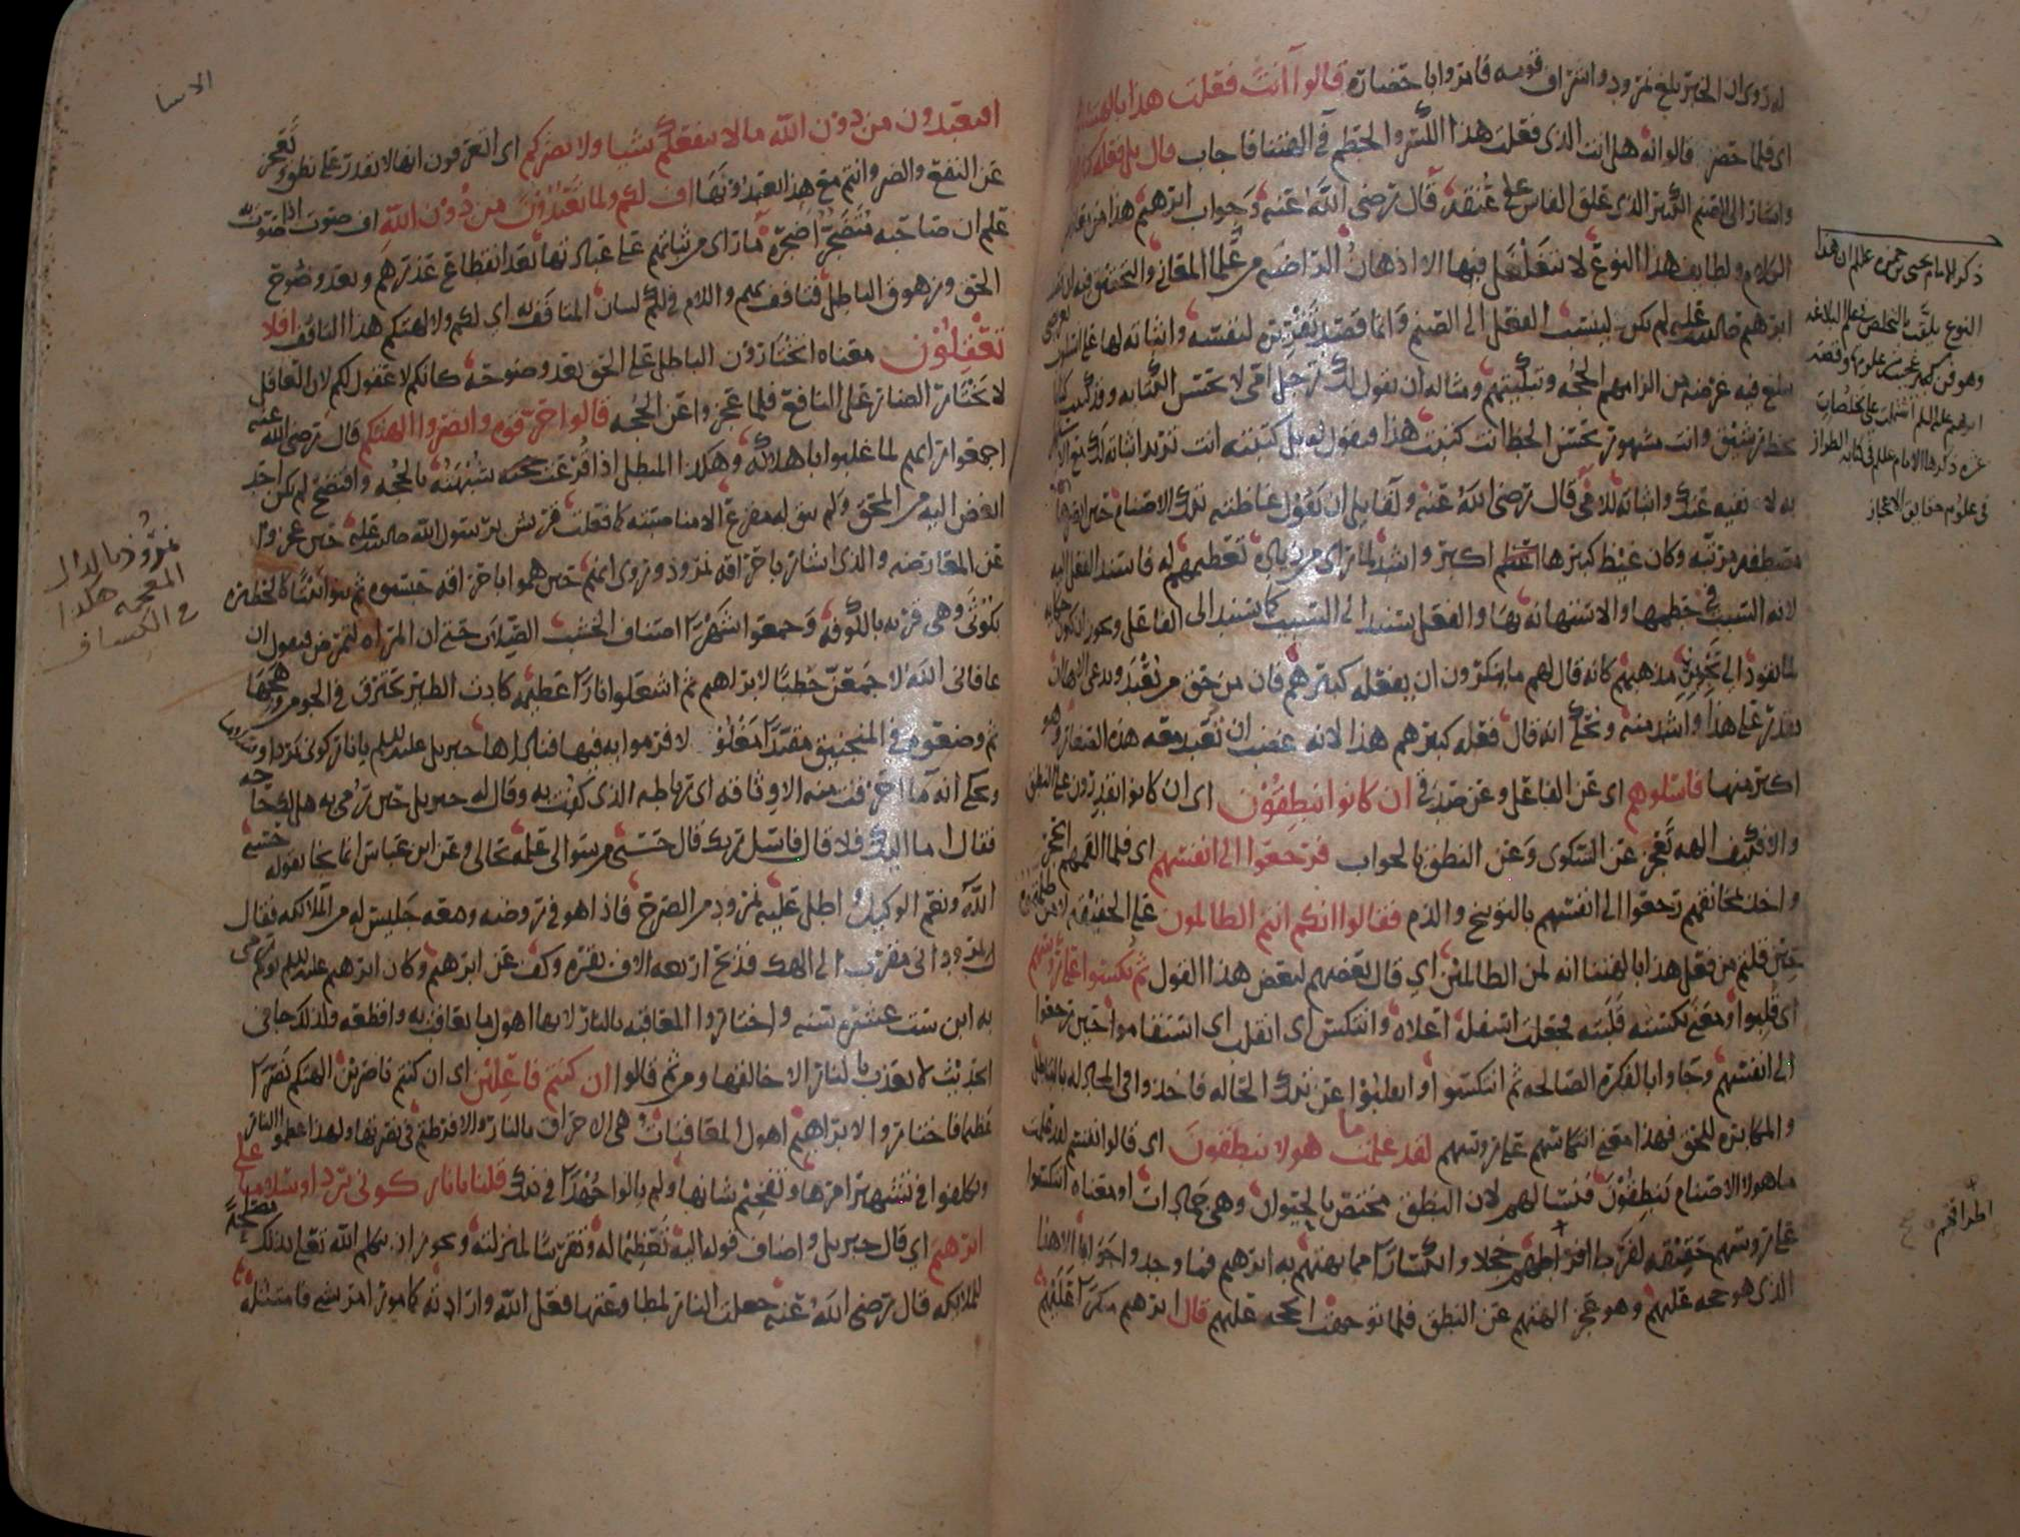 له روي ان الخبر بلغ نمرود واشراف قومه فامروا باحضاره قالوا اانت فعلت هذا بالهتنا
اي فلما حضر قالوا له هل انت الذي فعلت هذا الكسر والحطم في الهتنا فاجاب قال بل فعله كبيرهم
واشار الى الصنم الكبير الذي علق الفاس على عنقه قال رضي الله عنه وجواب ابرهيم هذا من
الكلام ولطايف هذا النوع لا يتغلغل فيها الا اذهان الراضه من علما المعاني والتحقيق فيه ان
ابرهيم صلى الله عليه لم يكن لينسب الفعل الى الصنم وانما قصد تقريره لنفسه واثباته لها على اسلوب تعريضي
يبلغ فيه غرضه من الزامهم الحجه وتبكيتهم ومثاله ان يقول لك رجل امي لا يحسن الكتابه وقد كتبت كتابا
بخط رشيق وانت مشهور بحسن الخط اانت كتبت هذا وتقول له بل كتبته انت تريد اثباته لك مع الاستهزا
به لا نفيه عنك واثباته للامي قال رضي الله عنه ولقايل ان يقول غاظته تلك الاصنام حين ابصرها
مصطفه مرتبه وكان غيظ كبيرها اكبر واشد لما راى من زياده تعظيمهم له فاسند الفعل اليه
لانه السبب في حطمها والاستهانه بها والفعل يسند الى السبب كما يسند الى الفاعل ويجوز ان يكون حكايه
لما يقود الى تجويزه مذهبهم كانه قال لهم ما تنكرون ان يفعله كبيرهم فان من حق من يعبد ويدعى الها ان
يقدر على هذا واشد منه ويحكى انه قال فعله كبيرهم هذا لانه غضب ان تعبد معه هذه الصغار وهو
اكبر منها فاسلوهم اي عن الفاعل وعن صدقي ان كانوا ينطقون اي ان كانوا يقدرون على النطق
والا فكيف اله يعجز عن الشكوى وعن النطق بالجواب فرجعوا الى انفسهم اي فلما القمهم الحجر
واخذ بمخانقهم رجعوا الى انفسهم بالتوبيخ والذم فقالوا انكم انتم الظالمون على الحقيقه لا من ظلمتموه
حين قلتم من فعل هذا بالهتنا انه لمن الظالمين اي قال بعضهم لبعض هذا القول ثم نكسوا على روسهم
اي قلبوا ومعنى نكسته قلبته فجعلت اسفله اعلاه وانتكس اي انقلب اي استقاموا حين رجعوا
الى انفسهم وجاوا بالفكره الصالحه ثم انتكسوا او انقلبوا عن تلك الحاله فاخذوا في المجادله بالباطل
والمكابره للحق فهذا معنى انتكاسهم على روسهم لقد علمت ما هولا ينطقون اي قالوا لقد علمت
ما هولا الاصنام ينطقون فنسالهم لان النطق مختص بالحيوان وهي جمادات او معناه انتكسوا
على روسهم حقيقه لفرط اطراقهم خجلا وانكسارا مما بهتهم به ابرهيم فما وجدوا جوابا الا هذا
الذي هو حجه عليهم وهو عجز الهتهم عن النطق فلما توجهت الحجه عليهم قال ابرهيم منكرا عليهم
ذكر الامام يحيى بن حمزه علم ان هذا
النوع يلقب بالتخلص في علم البلاغه
وهو فن كبير
ابرهيم علم اشتملت على تخلصات
غره ذكرها الامام علم في كتابه الطراز
في علوم حقايق الاعجاز
اطراقهم
الانبيا
افتعبدون من دون الله ما لا ينفعكم شيا ولا يضركم اي اتعرفون انها لا تقدر على نطق وتعجز
عن النفع والضر وانتم مع هذا تعبدونها اف لكم ولما تعبدون من دون الله اف صوت اذا صوت به
علم ان صاحبه متضجر اضجره ما راى من ثباتهم على عبادتها بعد انقطاع عذرهم وبعد وضوح
الحق وزهوق الباطل فتافف بهم واللام في لكم لبيان المتافف له اي لكم ولالهتكم هذا التافف افلا
تعقلون معناه اتختارون الباطل على الحق بعد وضوحه كانكم لا عقول لكم لان العاقل
لا يختار الضار على النافع فلما عجزوا عن الحجه قالوا حرقوه وانصروا الهتكم قال رضي الله عنه
اجمعوا رايهم لما غلبوا باهلاكه وهكذا المبطل اذا قرعت شبهته بالحجه وافتضح لم يكن احد
ابغض اليه من المحق ولم يبق له مفزع الا مناصبته كما فعلت قريش برسول الله صلى الله عليه حين عجزوا
عن المعارضه والذي اشار باحراقه نمرود وروي انهم حين هموا باحراقه حبسوه ثم بنوا بيتا كالحظيره
بكوثى وهي قريه بالكوفه وجمعوا شهرا اصناف الخشب الصلاب حتى ان المراه لتمرض فتقول ان
عافاني الله لاجمعن حطبا لابراهيم ثم اشعلوا نارا عظيمه كادت الطير تحترق في الجو من وهجها
ثم وضعوه في المنجنيق مقيدا مغلولا فرموا به فيها فناداها جبريل عليه السلم يا نار كوني بردا وسلاما
ويحكى انه ما احرقت منه الا وثاقه اي رباطه الذي كتفت به وقال له جبريل حين رمي به هل لك حاجه
فقال اما اليك فلا قال فاسل ربك قال حسبي من سوالي علمه بحالي وعن ابن عباس انما نجا بقوله حسبي
الله ونعم الوكيل واطل عليه نمرود من الصرح فاذا هو في روضه ومعه جليس له من الملايكه فقال
نمرود اني مقرب الى الهك فذبح اربعه الاف بقره وكف عن ابرهيم وكان ابرهيم عليه السلم يوم رمي
به ابن ست عشره سنه واختاروا المعاقبه بالنار لانها اهول ما يعاقب به وافظعه ولذلك جا في
الحديث لا يعذب بالنار الا خالقها ومن ثم قالوا ان كنتم فاعلين اي ان كنتم ناصرين الهتكم نصرا
عظيما فاختاروا لابراهيم اهول المعاقبات وهي الاحراق بالنار والا فرطتم في نصرتها ولهذا عظموا النار
وتكلفوا في تشهير امرها وتفخيم شانها ولم يالوا جهدا في ذلك قلنا يا نار كوني بردا وسلاما على
ابرهيم اي قال جبريل واضاف قوله اليه تعظيما له وتقريبا لمنزلته ويجوز ان يتكلم الله تعلى بذلك مصلحه
للملايكه قال رضي الله عنه جعلت النار لمطاوعتها فعل الله وارادته كمامور امر بشي فامتثله
نمروذ بالذال
المعجمه هكذا
في الكشاف